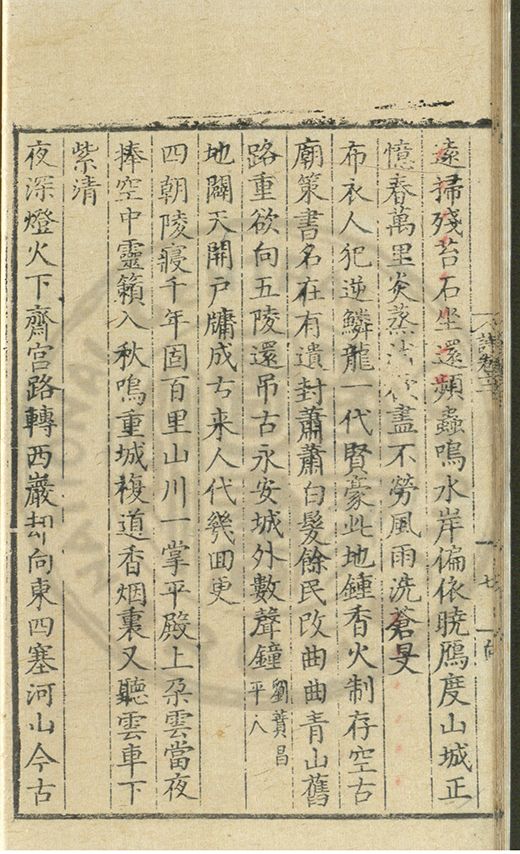 遠掃殘苔石坐還頻蟲鳴水岸偏依曉鴈度山城正
憶春萬里炎蒸盡不勞風雨洗蒼旻
布衣人犯逆鱗龍一代賢豪此地鍾香火制存空古
廟策書名在有遺封蕭蕭白髮餘民改曲曲青山舊
路重欲向五陵還吊古永安城外數聲鐘劉蕡昌平人
地闢天開戶牖成古来人代幾囬更
四朝陵寢千年固百里山川一掌平殿上朶雲當夜
捧空中靈籟入秋鳴重城複道香烟裏又聽雲車下
紫清
夜深燈火下齋宮路轉西巖却向東四塞河山今古
詩卷
七